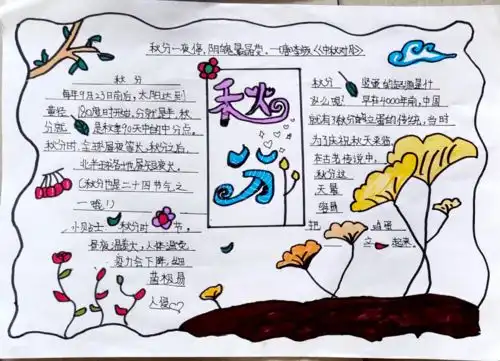 秋分一夜停,阴晴最难凭。
秋分
秋分
每年9月23日前后,太阳达到
黄经180度时开始,
是秋季90天中的中分点。
秋分时,全球昼夜等长,秋分之后,
北半球各地昼短夜长。
(秋分也是二十四节气之
一哦!)
小贴士:秋分时节,
昼夜温差大,人体免疫
菌极易
人侵
秋分 竖蛋的起源是什
么呢? 早在4000年前,中国
就有了秋分的立蛋的传统,当时
为了庆祝秋天来临
在古老传说中,
秋分这
天最
容易
把 鸡蛋
立 起来。